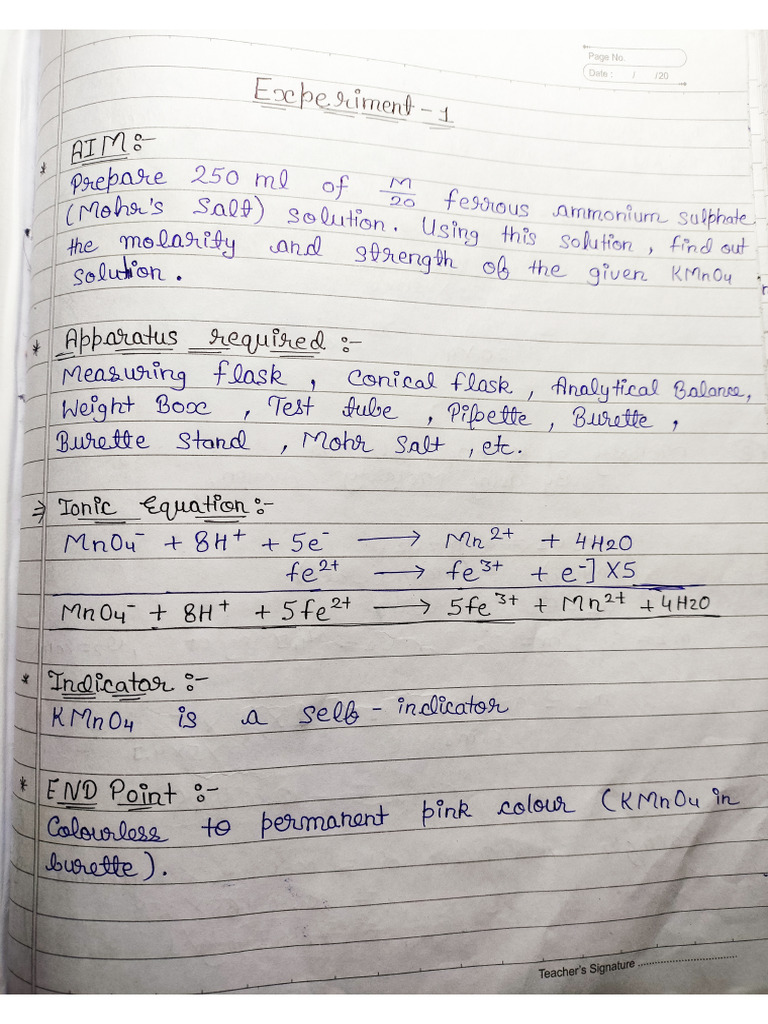 Page No.
Date : / /20
Experiment - 1
* AIM :-
Prepare 250 ml of M/20 ferrous ammonium sulphate
(Mohr's Salt) solution. Using this solution, find out
the molarity and strength of the given KMnO4
solution.
* Apparatus required :-
Measuring flask, Conical flask, Analytical Balance,
Weight Box, Test tube, Pipette, Burette,
Burette Stand, Mohr Salt, etc.
⇒ Ionic Equation :-
MnO4⁻ + 8H⁺ + 5e⁻ ⟶ Mn²⁺ + 4H2O
fe²⁺ ⟶ fe³⁺ + e⁻] X5
MnO4⁻ + 8H⁺ + 5fe²⁺ ⟶ 5fe³⁺ + Mn²⁺ + 4H2O
* Indicator :-
KMnO4 is a self - indicator
* END Point :-
Colourless to permanent pink colour (KMnO4 in
burette).
Teacher's Signature